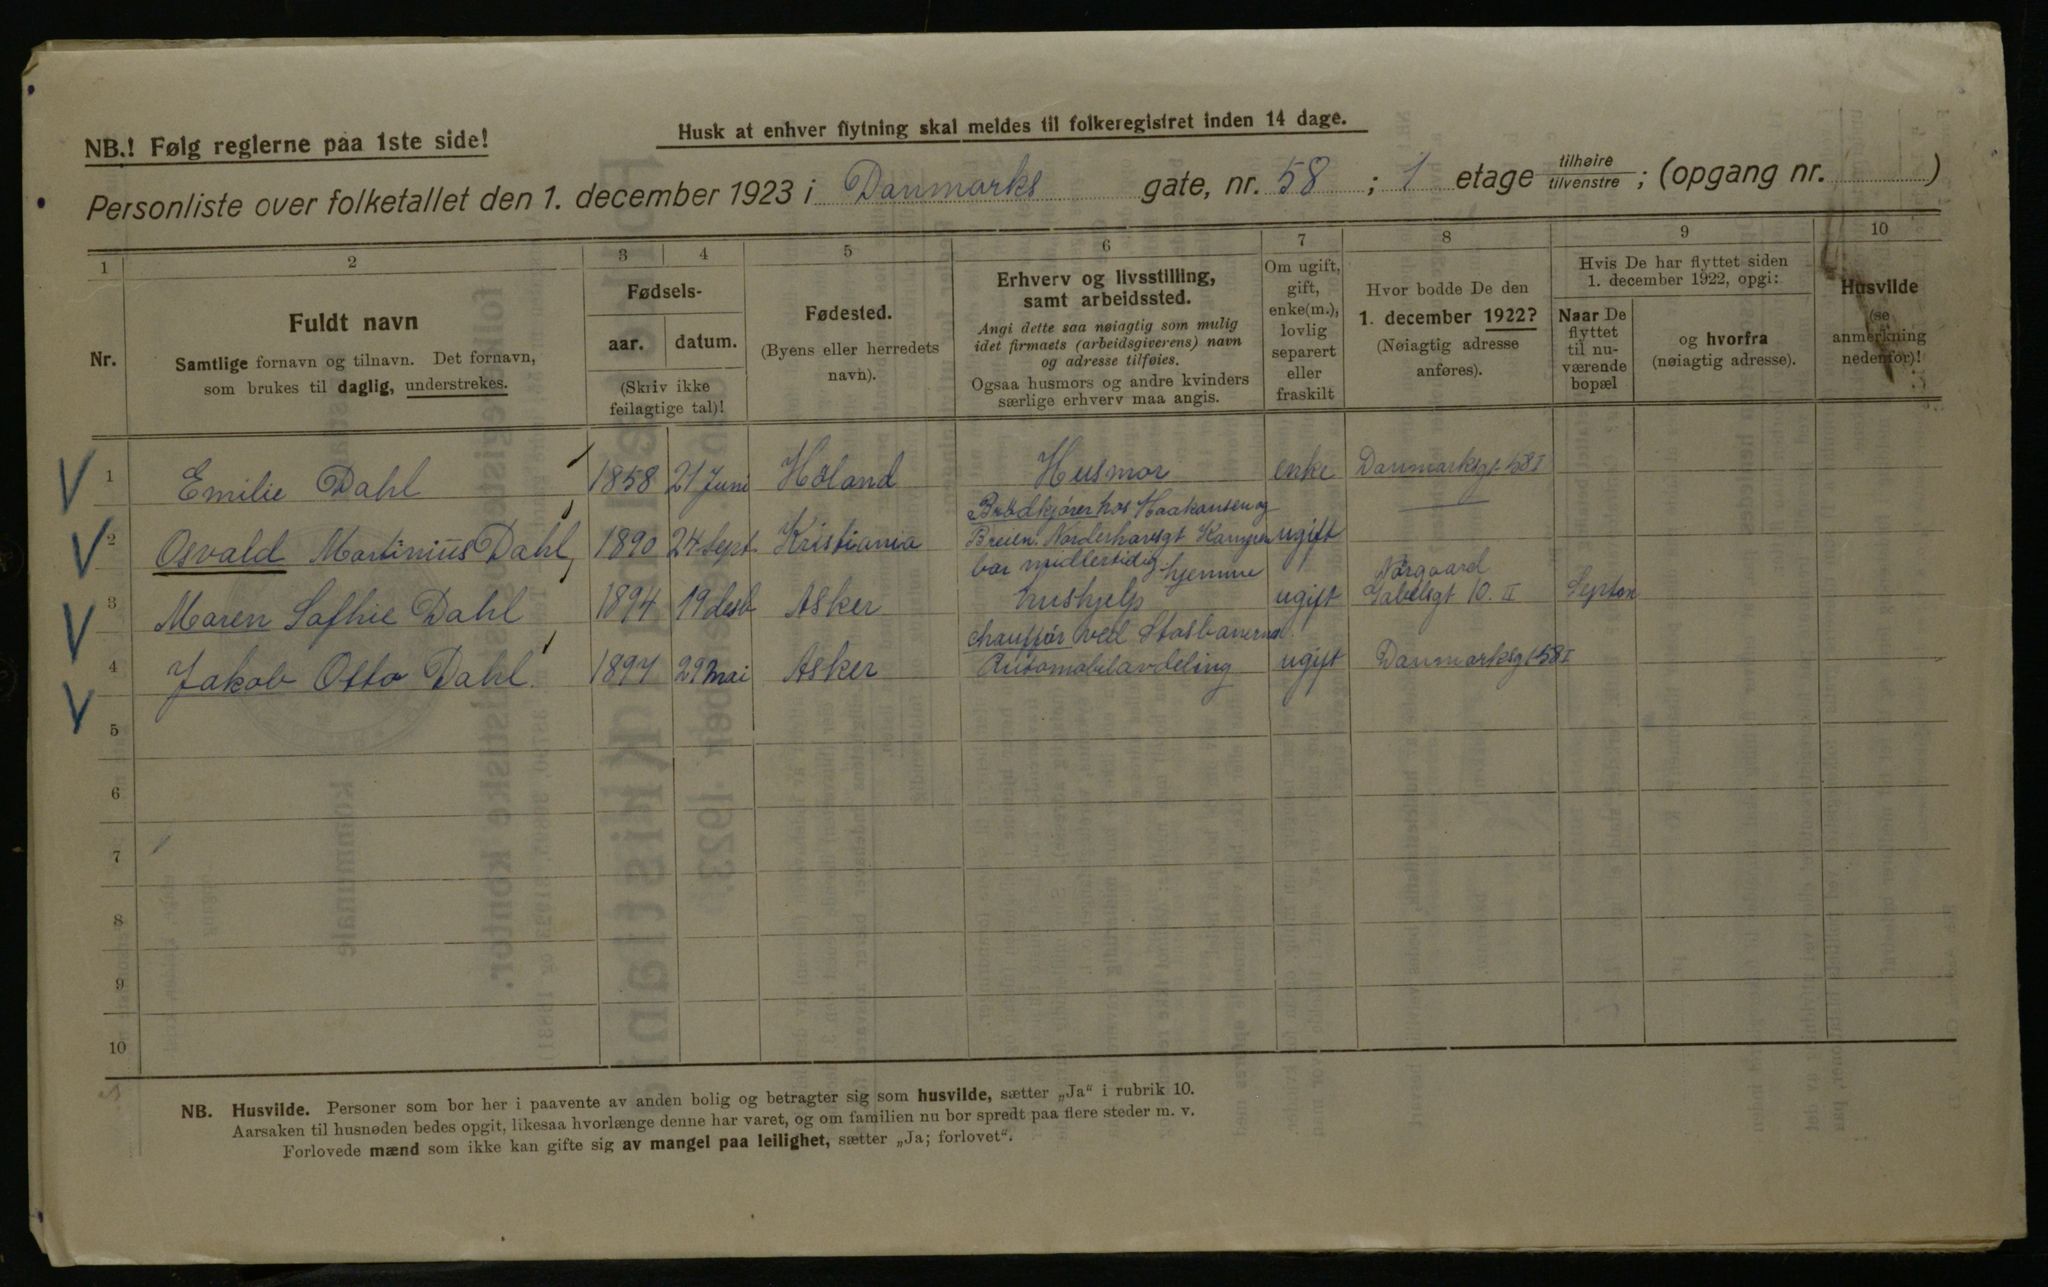 NB.! Følg reglerne paa 1ste side!
Husk at enhver flytning skal meldes til folkeregistret inden 14 dage.
Personliste over folketallet den 1. december 1923 i Danmarks gate, nr. 58 ; 1 etage tilhøire tilvenstre ; (opgang nr. )
1 2 3 4 5 6 7 8 9 10
Nr.
Fuldt navn
Samtlige fornavn og tilnavn. Det fornavn,
som brukes til daglig, understrekes.
Fødsels-
aar. datum.
(Skriv ikke
feilagtige tal)!
Fødested.
(Byens eller herredets
navn).
Erhverv og livsstilling,
samt arbeidssted.
Angi dette saa nøiagtig som mulig
idet firmaets (arbeidsgiverens) navn
og adresse tilføies.
Ogsaa husmors og andre kvinders
særlige erhverv maa angis.
Om ugift,
gift,
enke(m.),
lovlig
separert
eller
fraskilt
Hvor bodde De den
1. december 1922?
(Nøiagtig adresse
anføres).
Hvis De har flyttet siden
1. december 1922, opgi:
Naar De
flyttet
til nu-
værende
bopæl
og hvorfra
(nøiagtig adresse).
Husvilde
(se
anmerkning
nedenfor)!
1 Emilie Dahl 1858 21 Juni Høland Husmor enke Danmarksgt 58 I
Brødkjører hos Haakonsen og
2 Osvald Martinius Dahl, 1890 24 Sept. Kristiania Breien. Norderhovsgt Kampen ugift
bor midlertidig hjemme Norgaard
3 Maren Sofhie Dahl 1894 19 desb Asker hushjelp ugift Gabelsgt 10. II Septem
chauffør ved Stasbanerna.
4 Jakob Otto Dahl. 1897 29 mai Asker Automobilavdeling ugift Danmarksgt 58 I
5
6
7
8
9
10
NB. Husvilde. Personer som bor her i paavente av anden bolig og betragter sig som husvilde, sætter „Ja“ i rubrik 10.
Aarsaken til husnøden bedes opgit, likesaa hvorlænge denne har varet, og om familien nu bor spredt paa flere steder m. v.
Forlovede mænd som ikke kan gifte sig av mangel paa leilighet, sætter „Ja; forlovet“.